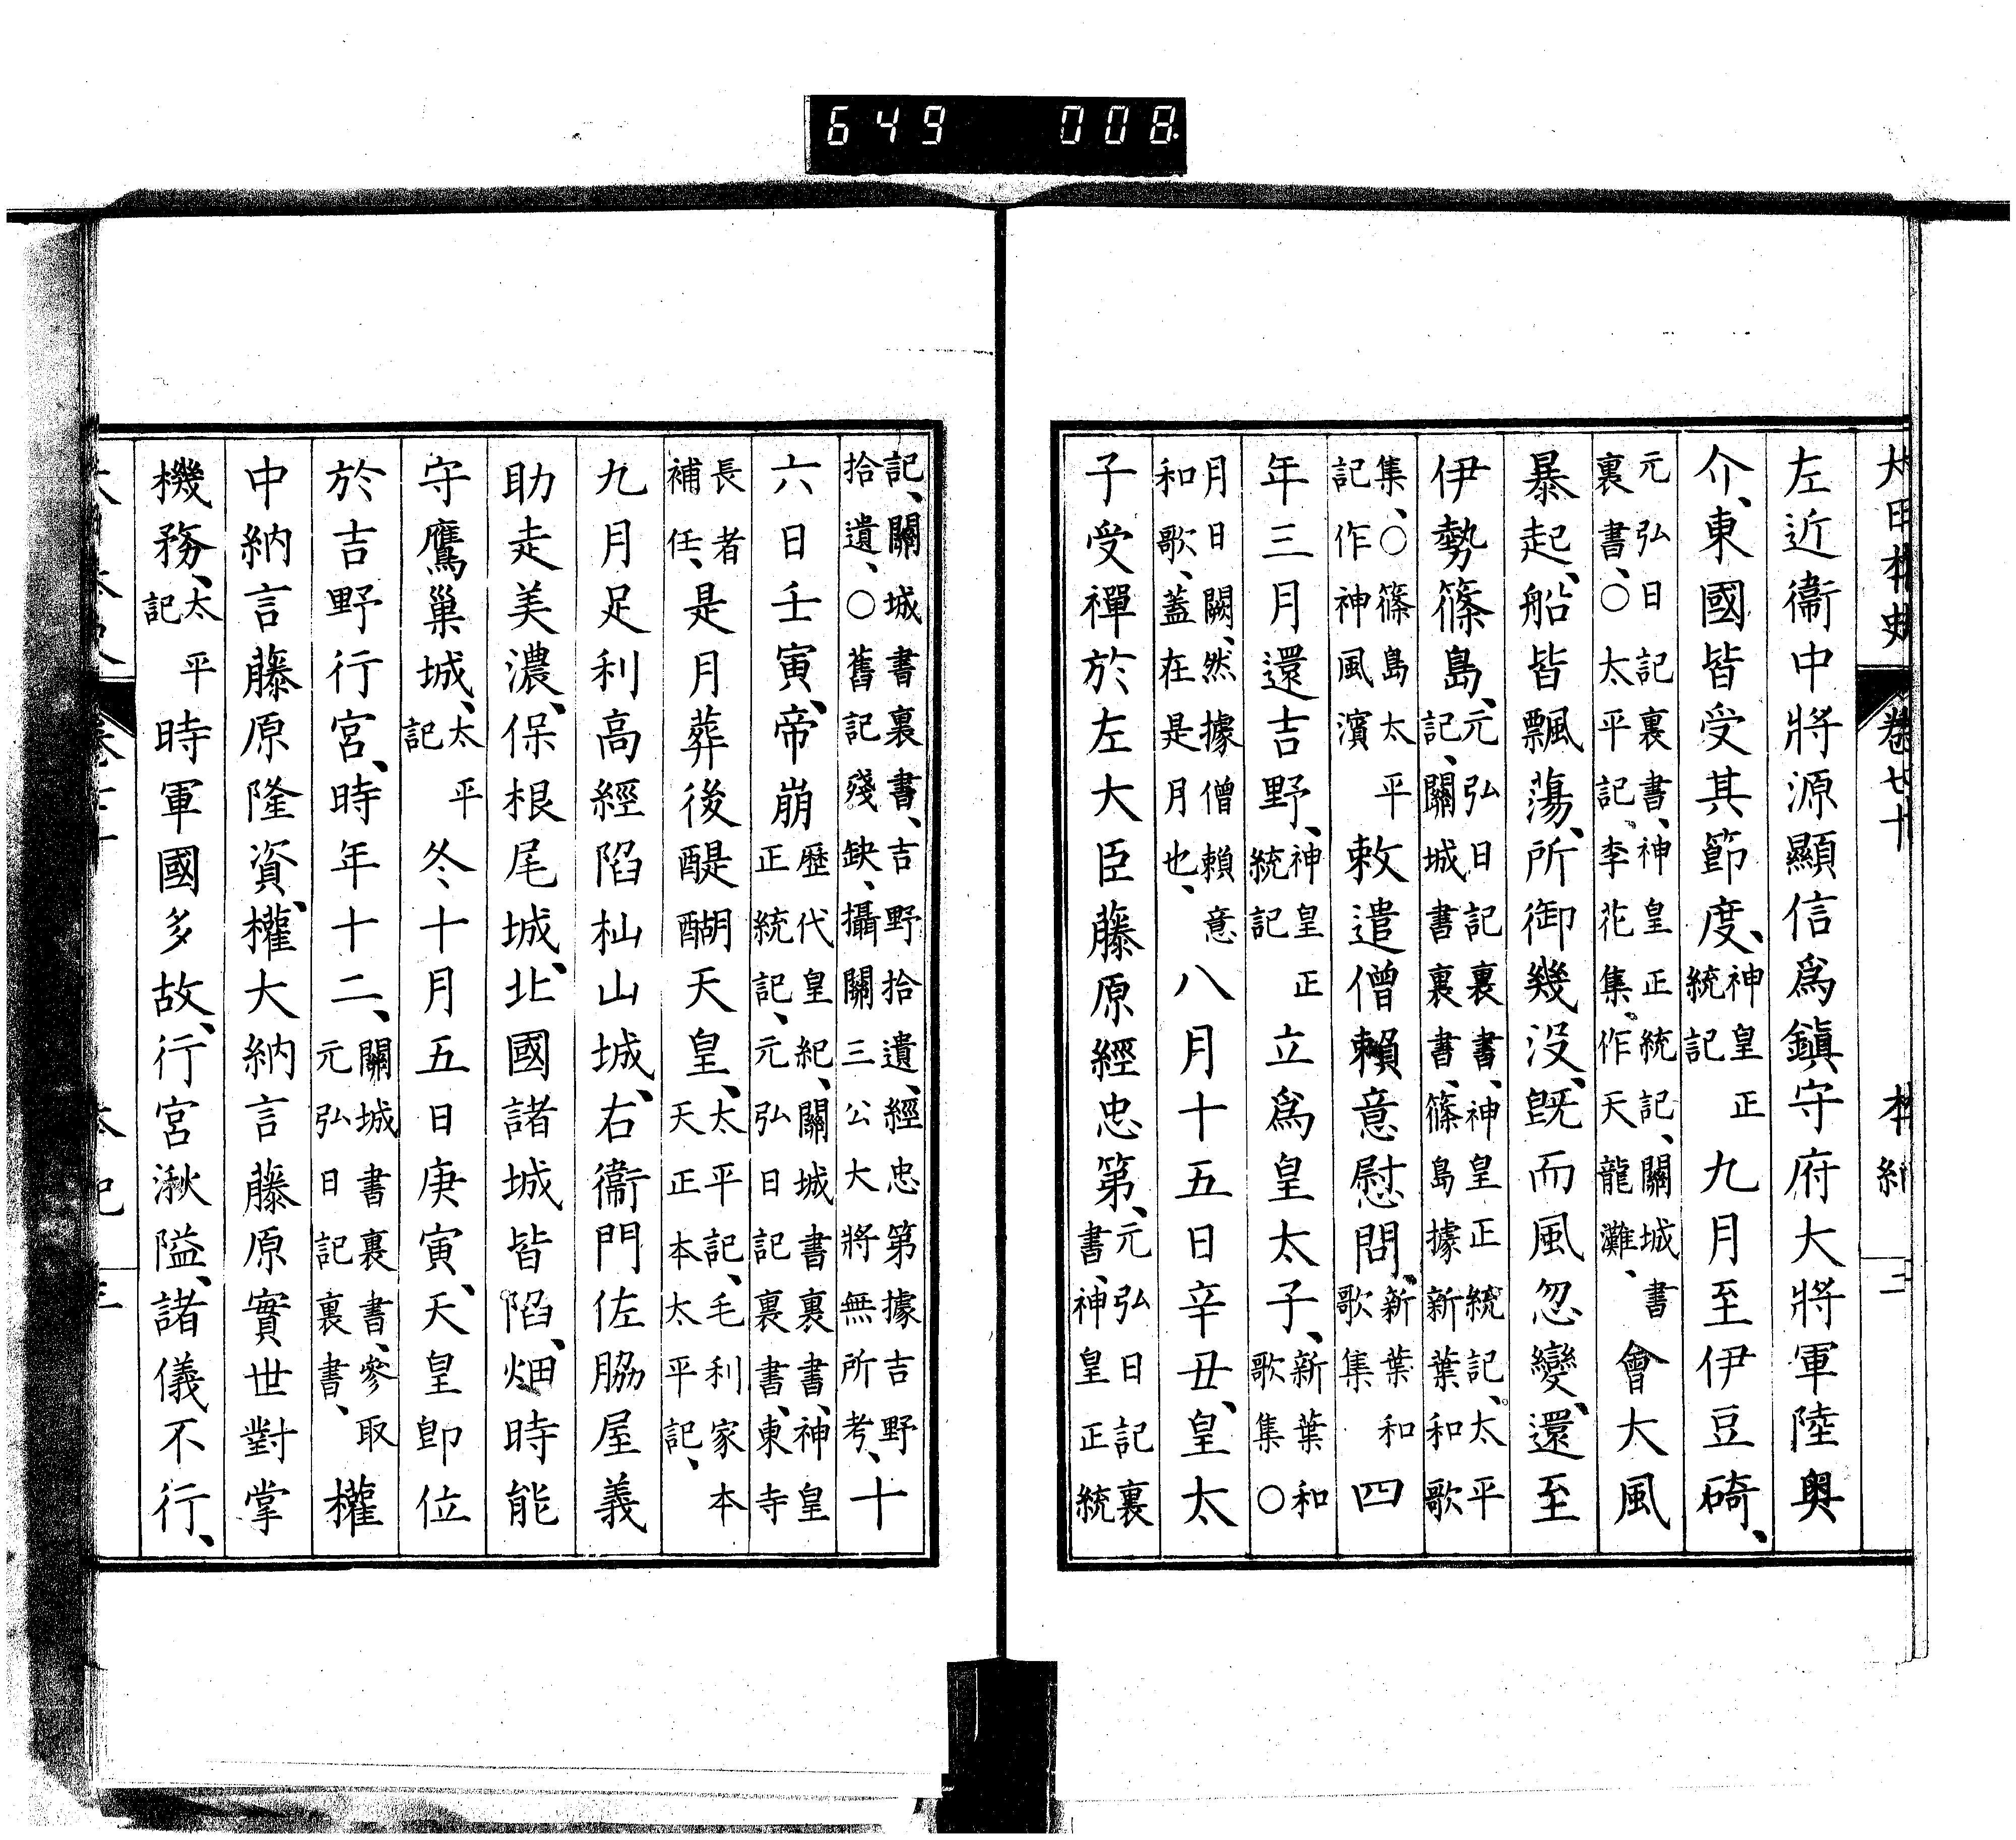 大日本史 卷七十 本紀
左近衞中將源顯信爲鎭守府大將軍陸奥
介、東國皆受其節度、神皇正統記九月至伊豆碕、
元弘日記裏書、神皇正統記、關城書裏書、○太平記、李花集、作天龍灘、會大風
暴起、船皆飄蕩、所御幾没、既而風忽變、還至
伊勢篠島、元弘日記裏書、神皇正統記、太平記、關城書裏書、篠島據新葉和歌
集、○篠島太平記作神風濱敕遣僧賴意慰問、新葉和歌集四
年三月還吉野、神皇正統記立爲皇太子、新葉和歌集○
月日闕、然據僧賴意和歌、蓋在是月也、八月十五日辛丑、皇太
子受禪於左大臣藤原經忠第、元弘日記裏書、神皇正統
記、關城書裏書、吉野拾遺、經忠第據吉野拾遺、○舊記殘缺、攝關三公大將無所考、十
六日壬寅、帝崩歷代皇紀、關城書裏書、神皇正統記、元弘日記裏書、東寺
長者補任、是月葬後醍醐天皇、太平記、毛利家本天正本太平記、
九月足利高經陷杣山城、右衞門佐脇屋義
助走美濃、保根尾城、北國諸城皆陷、畑時能
守鷹巢城、太平記冬十月五日庚寅、天皇卽位
於吉野行宮、時年十二、關城書裏書、參取元弘日記裏書、權
中納言藤原隆資、權大納言藤原實世對掌
機務、太平記時軍國多故、行宮湫隘、諸儀不行、
649 008